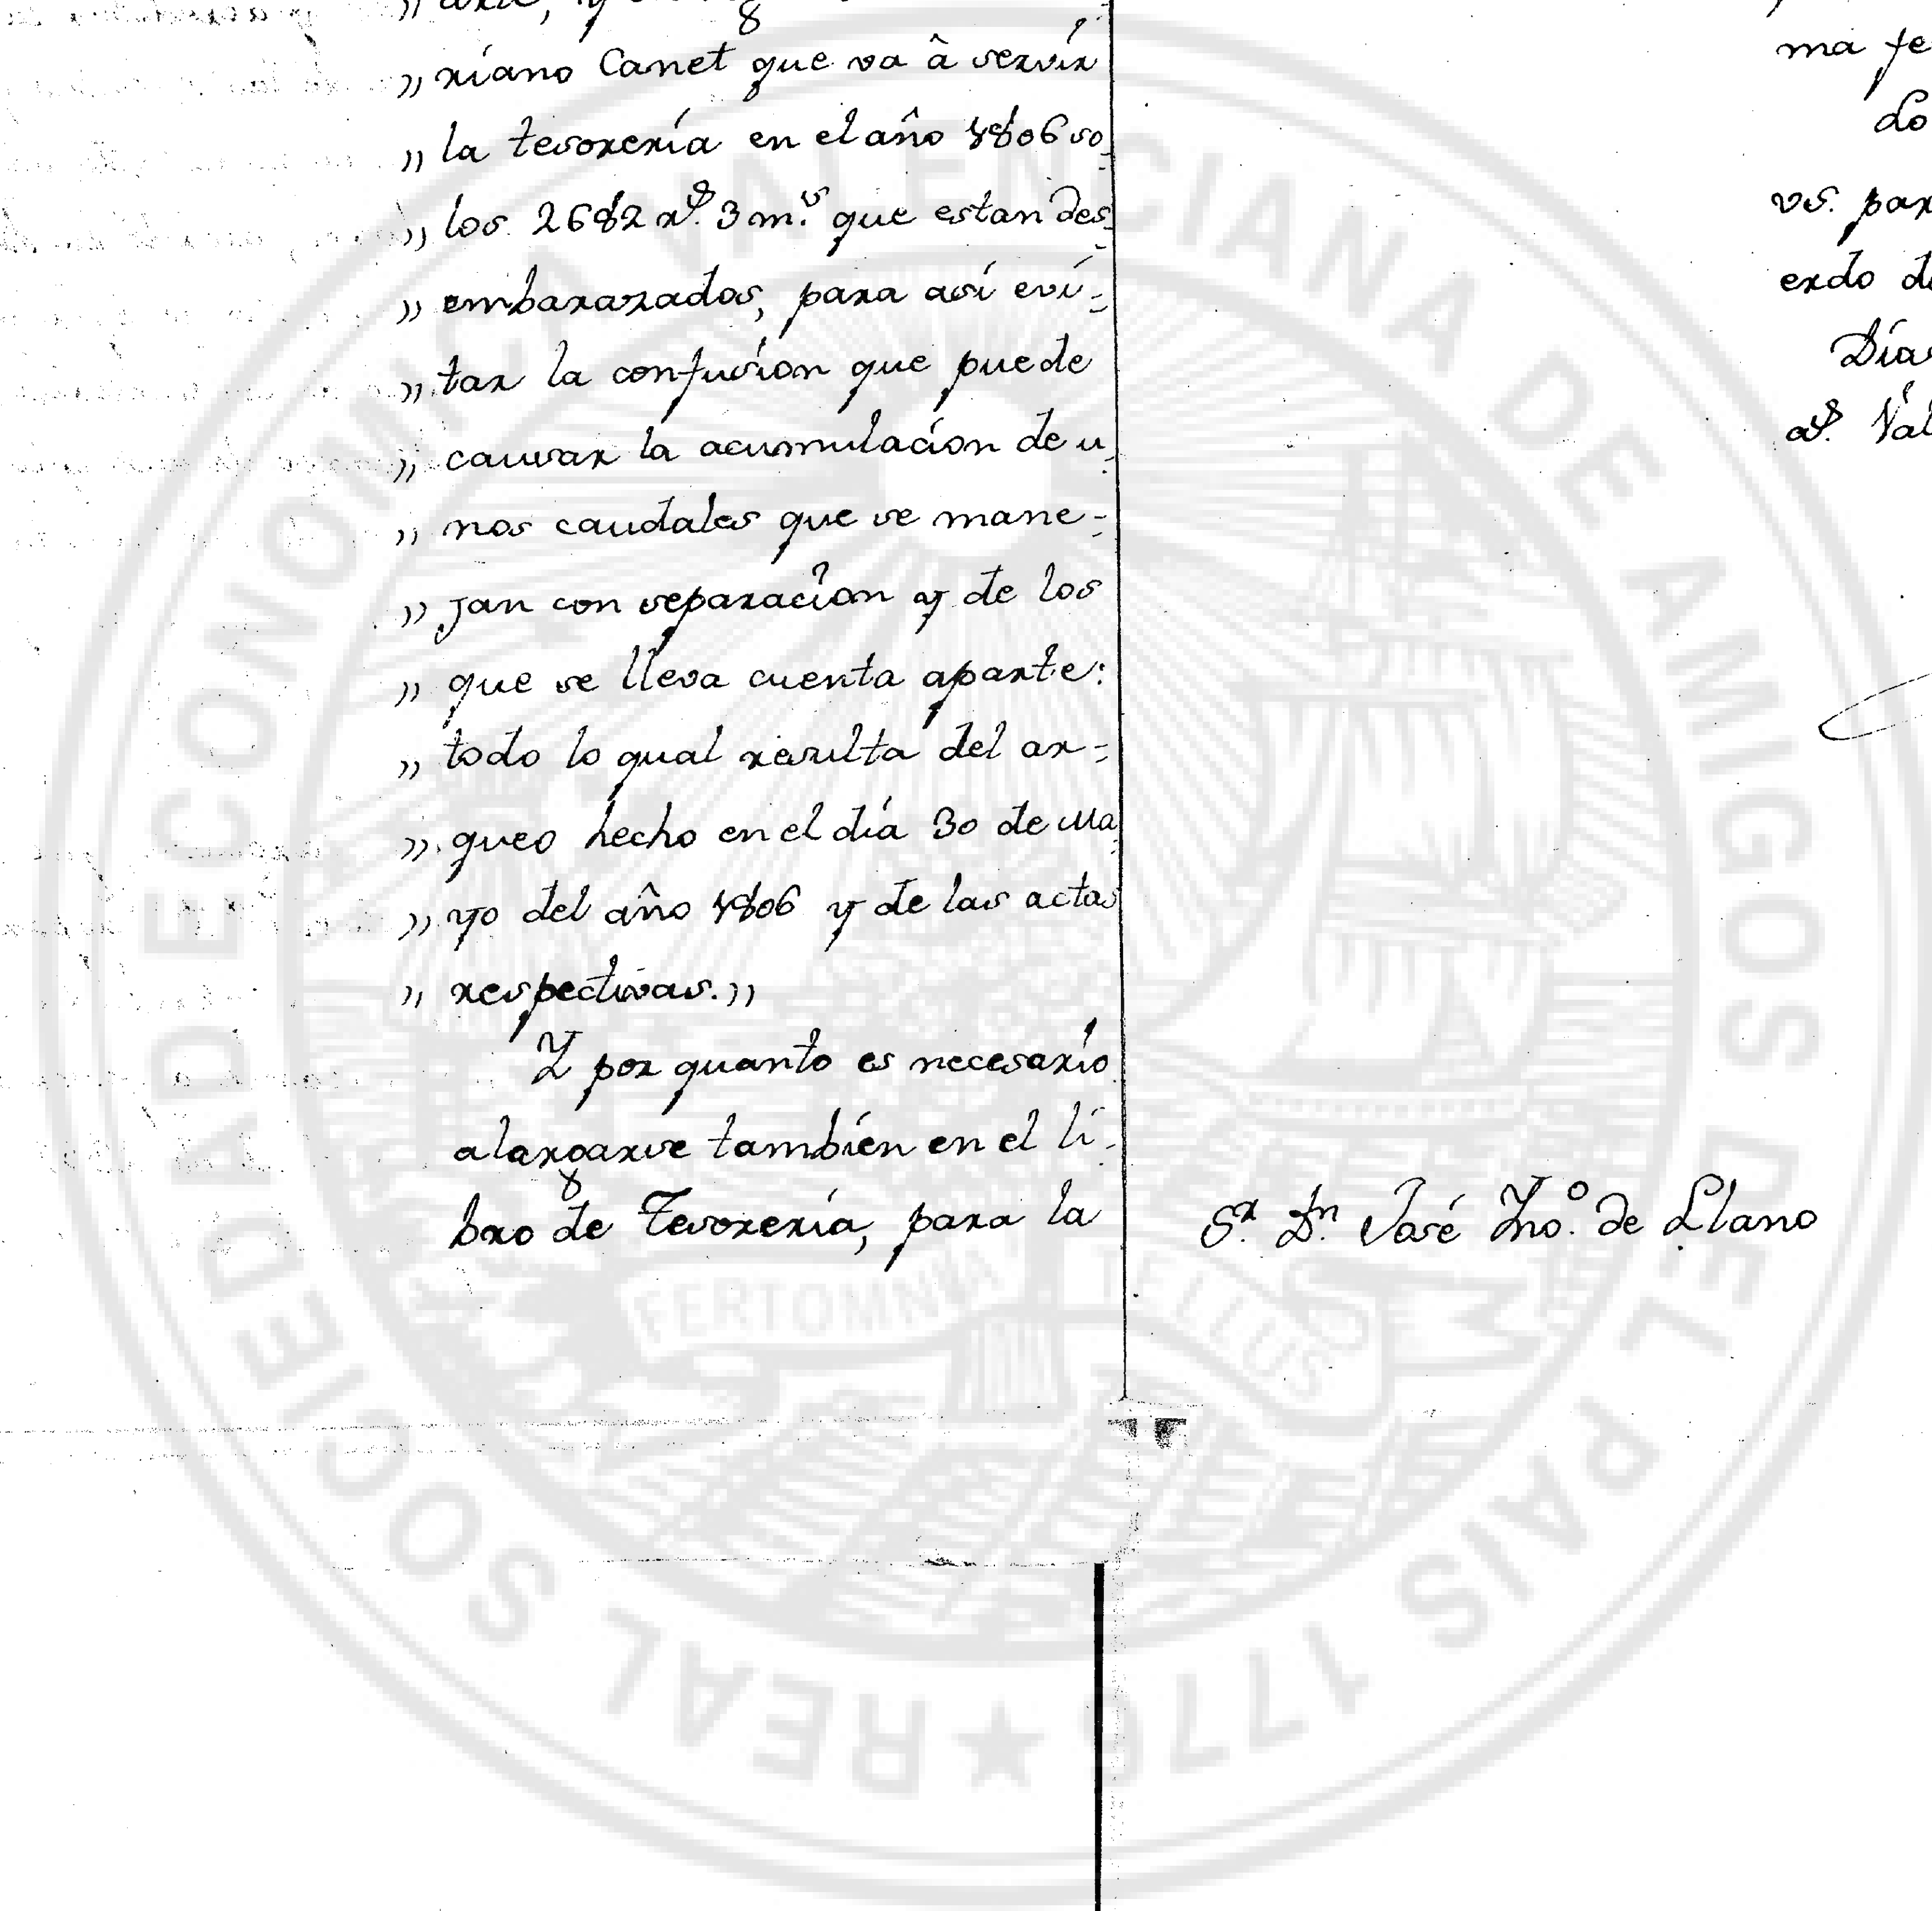 „ riano Canet que va â servir
„ la tesorería en el año 1806 so
„ los 2682 r.s 3 m.s que estan des
„ embarazados, para así evi=
„ tar la confusion que puede
„ causar la acumulacion de u
„ nos caudales que se mane=
„ jan con separacion y de los
„ que se lleva cuenta aparte:
„ todo lo qual resulta del ar=
„ queo hecho en el día 30 de Ma
„ yo del año 1806 y de las actas
„ respectivas.„
Y por quanto es necesario
alargarse también en el li=
bro de Tesorería, para la
ma fe
Lo
vs. par
erdo de
Días
a.s Val
S.r D.n José Ino.o de Llano
REAL SOCIEDAD ECONOMICA VALENCIANA DE AMIGOS DEL PAIS 1776
FERT OMNIA TELLUS